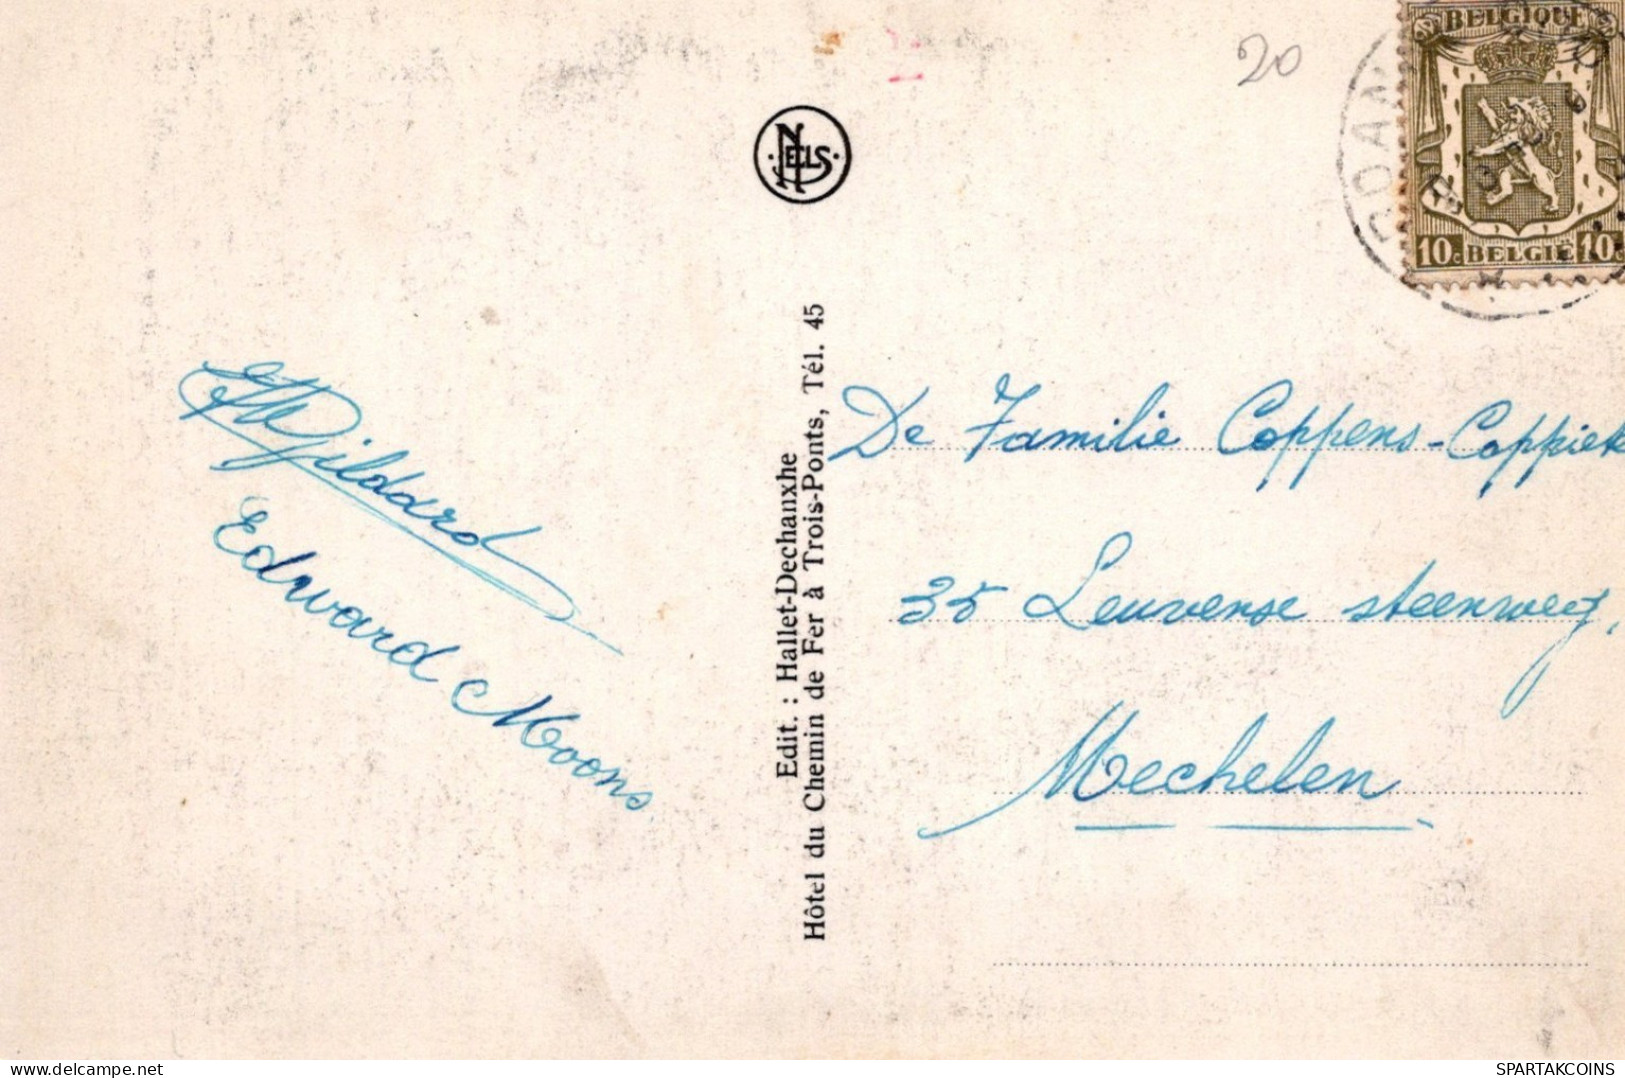 20
BELGIQUE
10c BELGIE 10c
NELS
Edit. : Hallet-Dechanxhe
Hôtel du Chemin de Fer à Trois-Ponts, Tél. 45
Edward Moons.
De Familie Coppens-Coppiet
35 Leuvense steenweg,
Mechelen
delcampe.net
SPARTAKCOINS